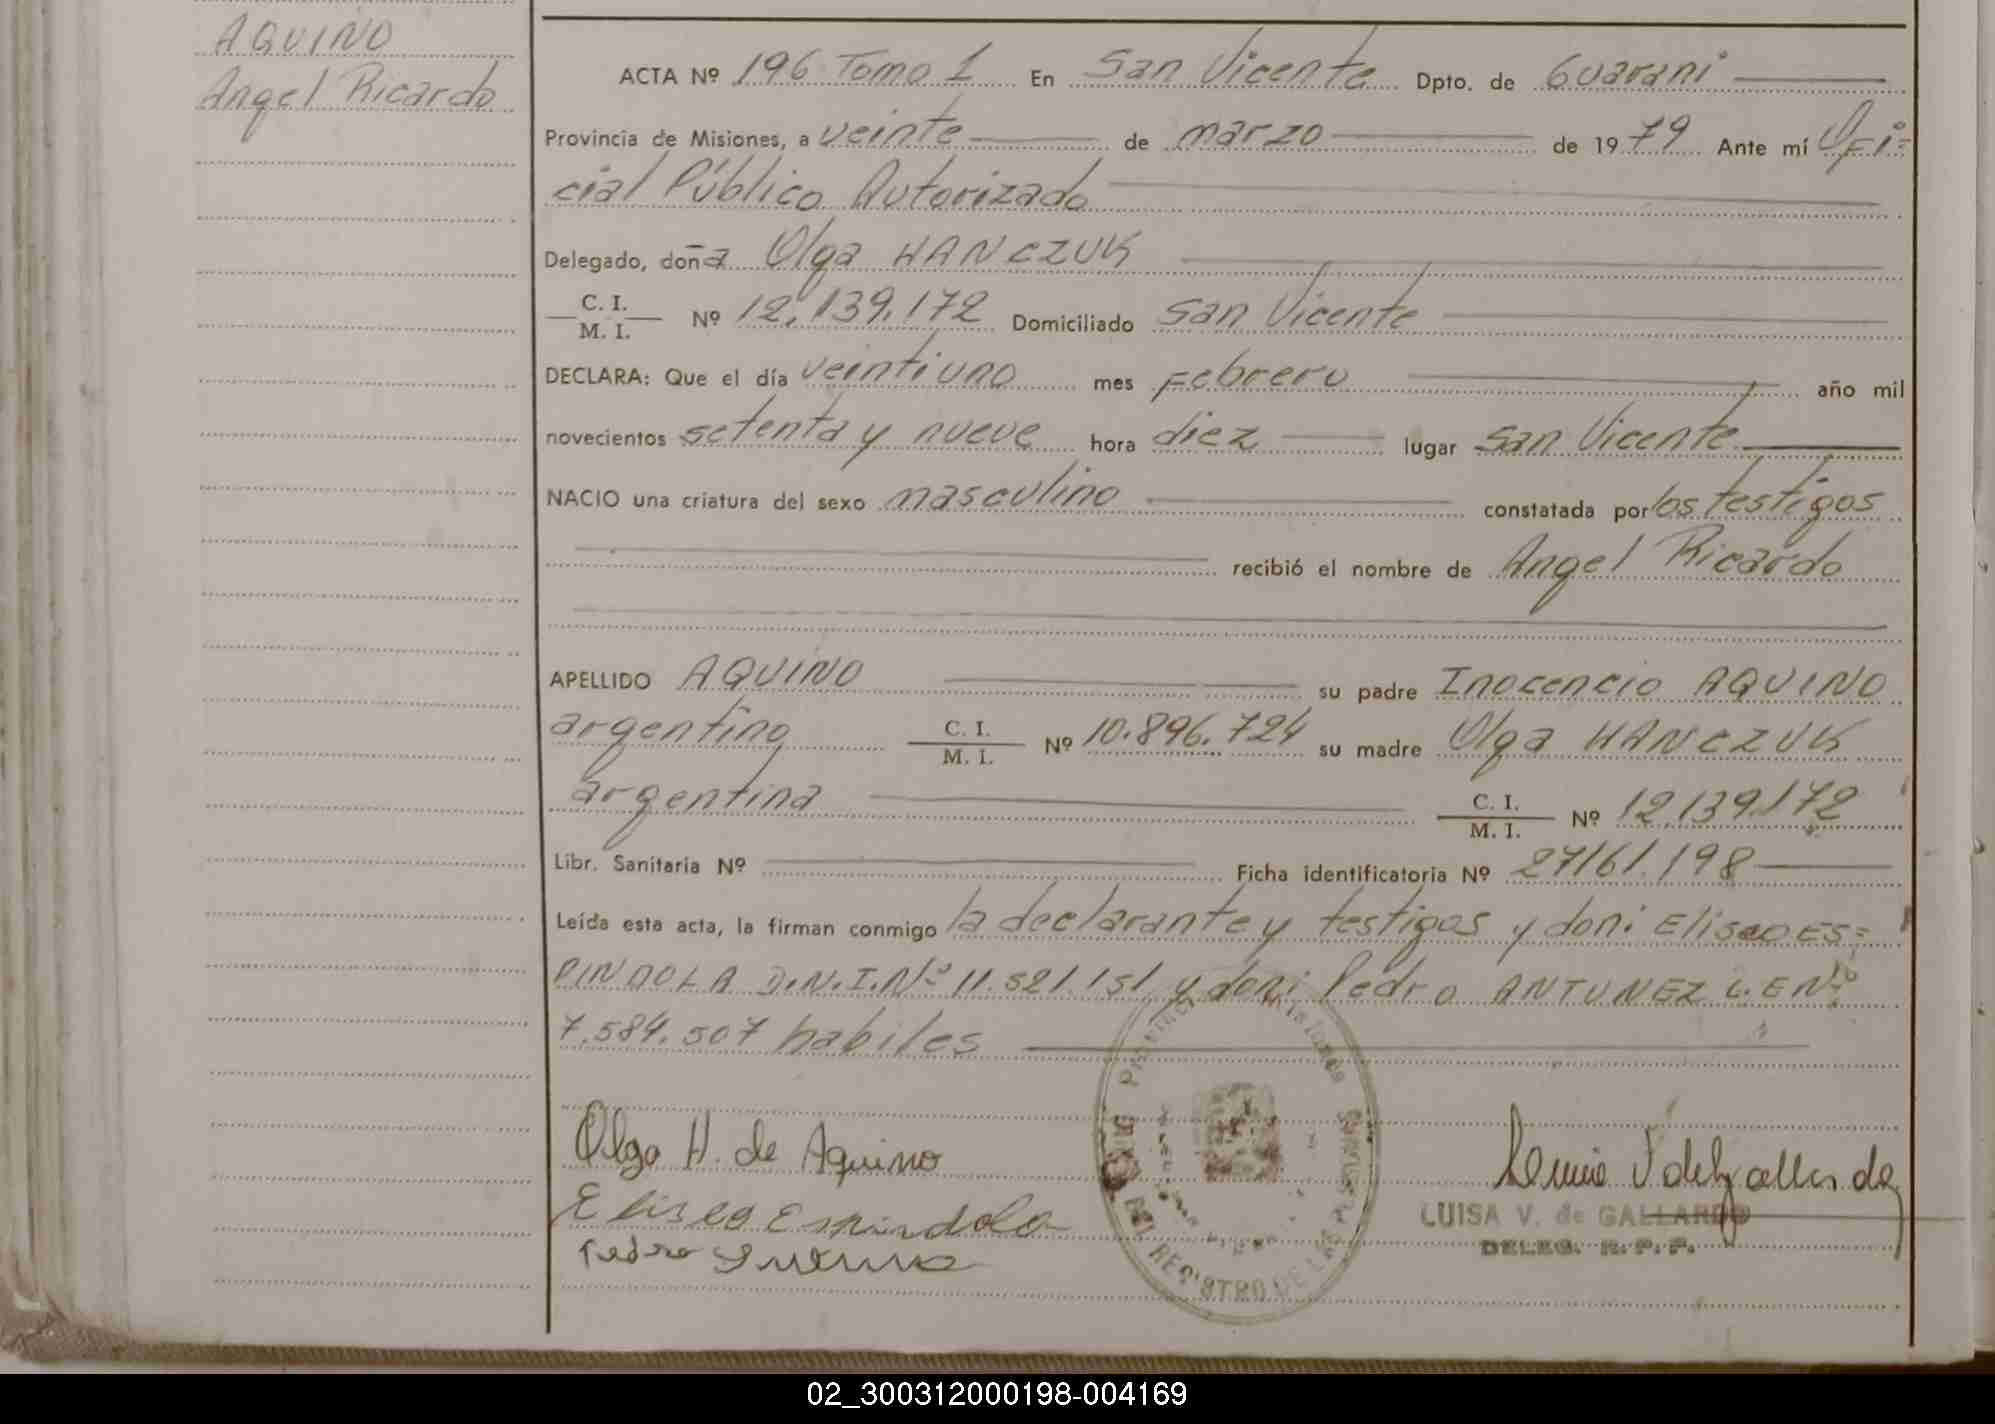 AQUINO
Angel Ricardo
ACTA Nº 196 Tomo 1 En San Vicente Dpto. de Guarani
Provincia de Misiones, a veinte de marzo de 1979 Ante mí Ofi=
cial Público Autorizado
Delegado, doña Olga HANCZUK
C. I.
M. I. Nº 12.139.172 Domiciliado San Vicente
DECLARA: Que el día veintiuno mes Febrero año mil
novecientos setenta y nueve hora diez lugar San Vicente
NACIO una criatura del sexo masculino constatada por los testigos
recibió el nombre de Angel Ricardo
APELLIDO AQUINO su padre Inocencio AQUINO
argentino C. I.
M. I. Nº 10.896.724 su madre Olga HANCZUK
argentina C. I.
M. I. Nº 12.139.172
Libr. Sanitaria Nº Ficha identificatoria Nº 27161.198
Leída esta acta, la firman conmigo la declarante y testigos y don: Eliseo ES=
PINDOLA D.N.I.Nº 11.521.151 y don: Pedro ANTUNEZ L.E Nº
7.584.507 habiles
Olga H. de Aquino
Eliseo Espindola
Pedro
LUISA V. de GALLARDO
DELEG. R. P. P.
REGISTRO DE LAS
02_300312000198-004169